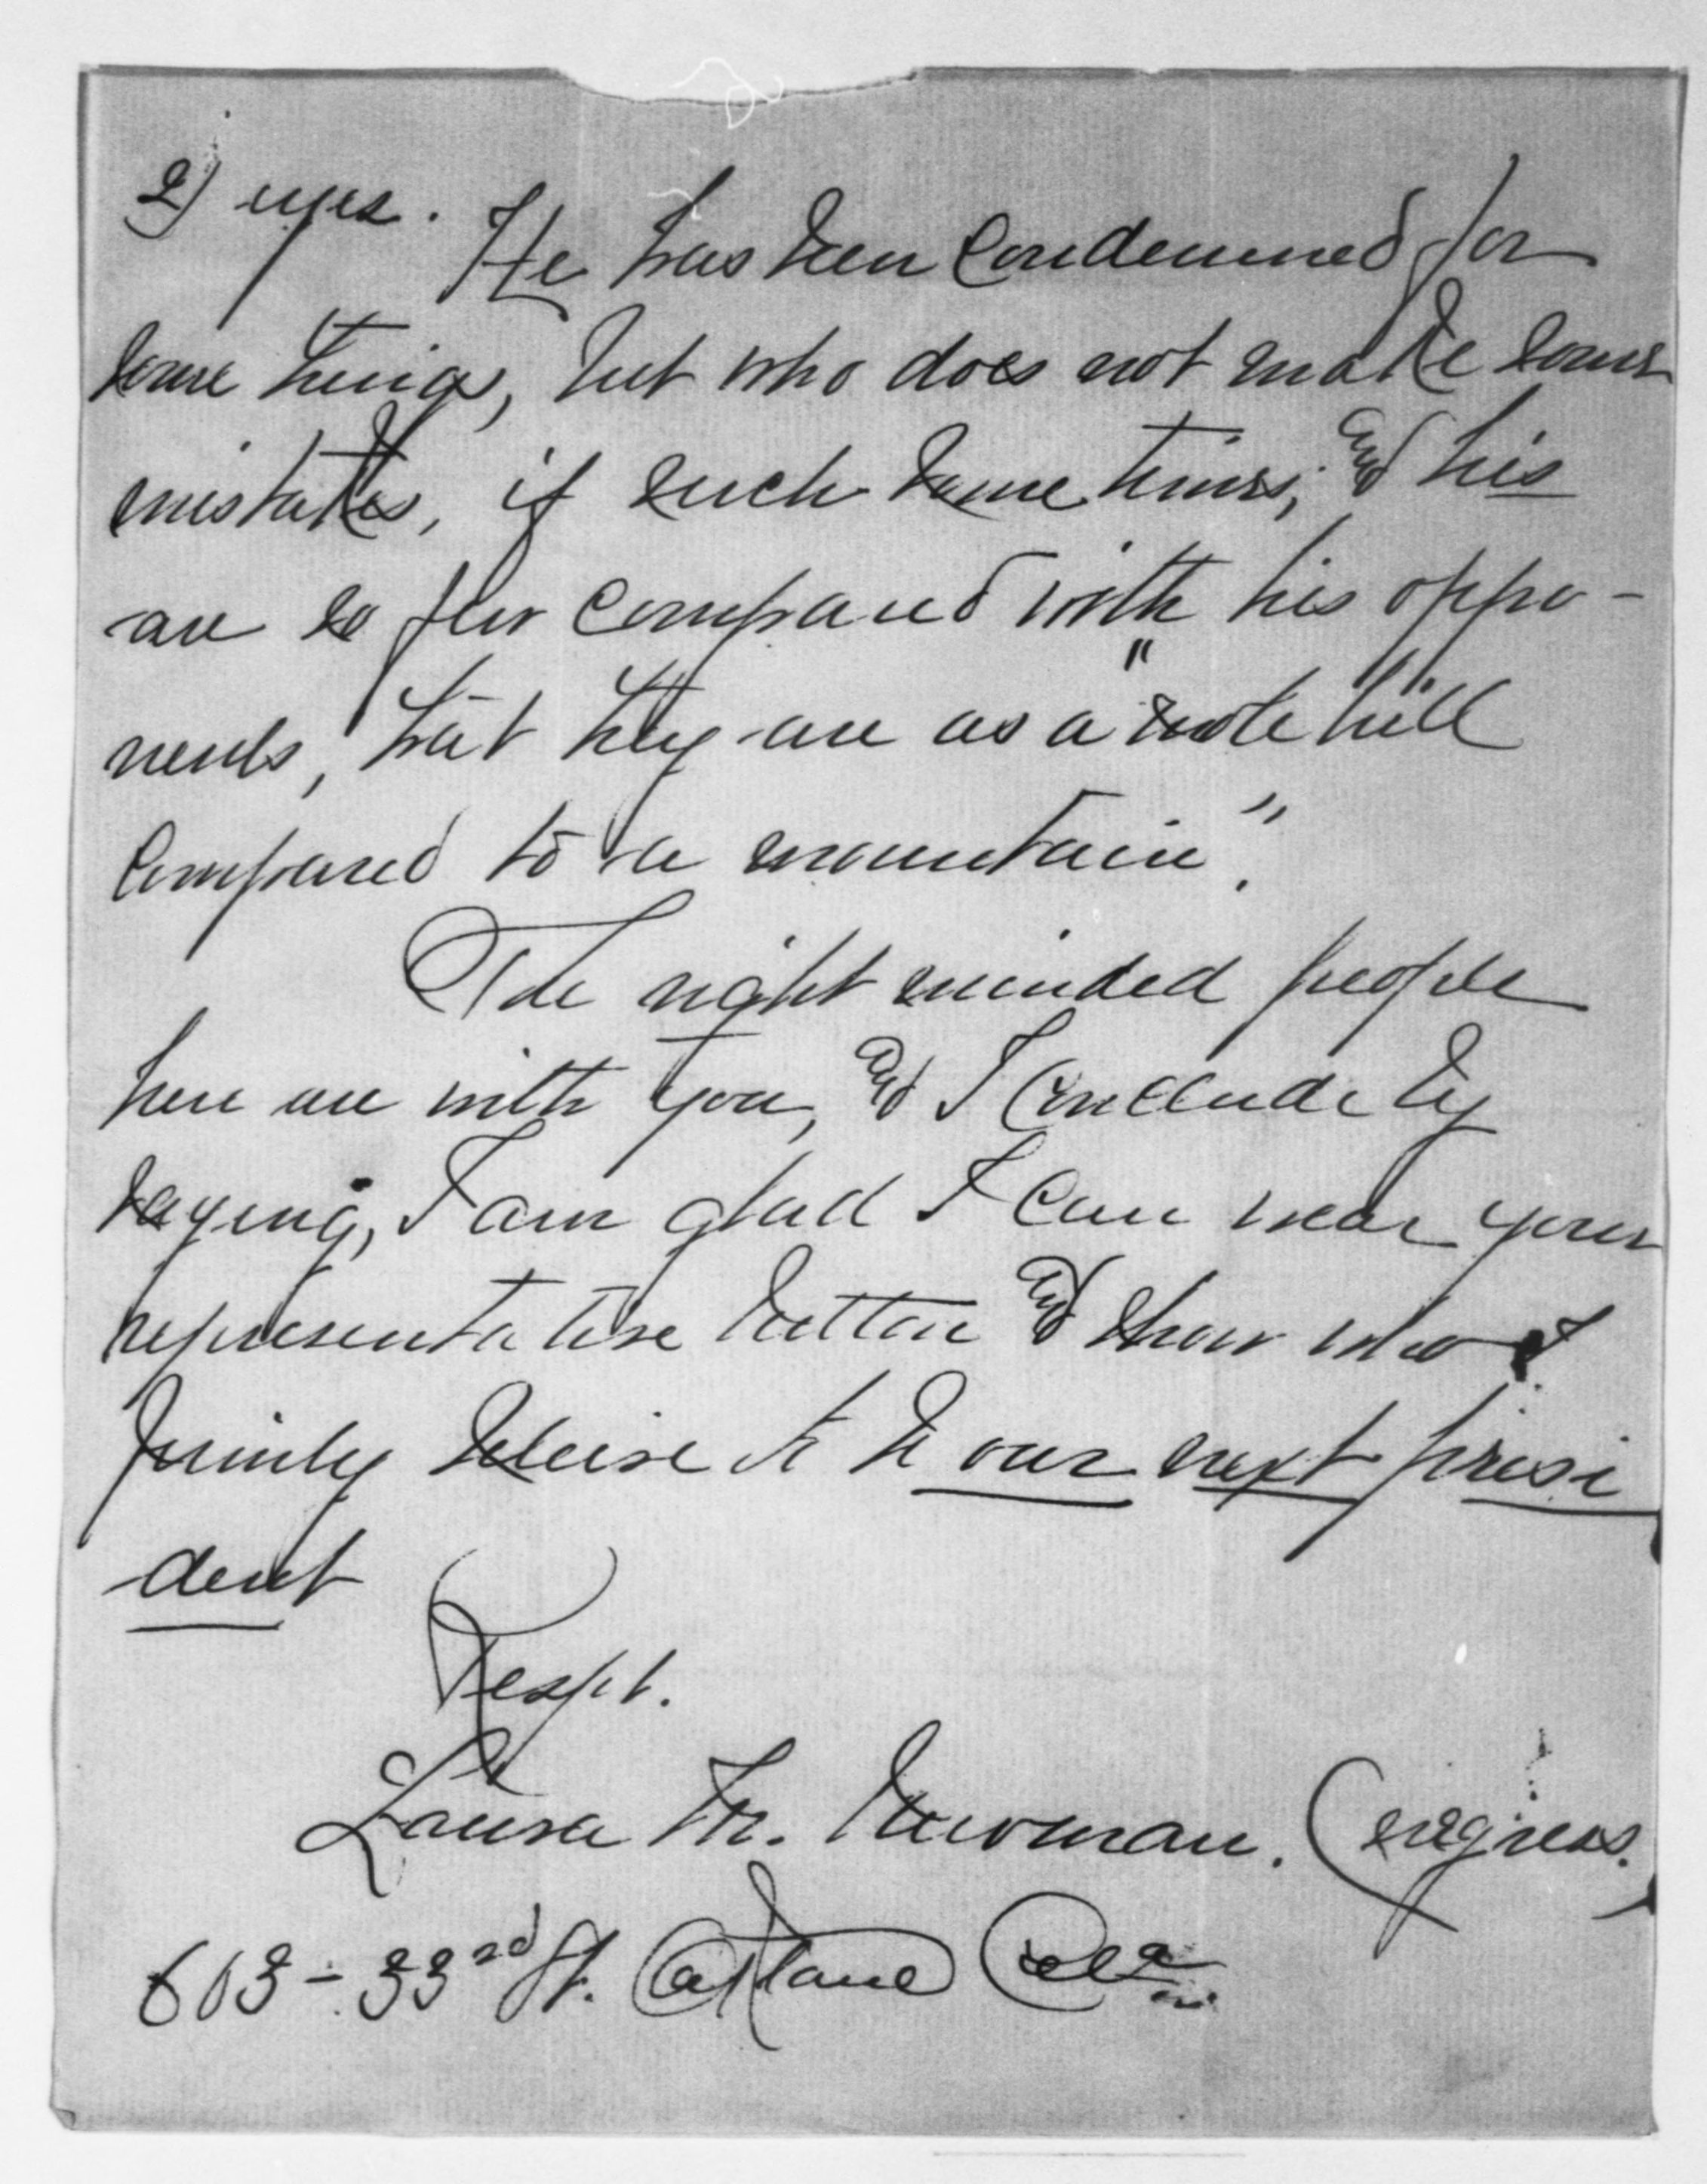 2) eyes. He has been condemned for
some things, but who does not make some
mistakes, if such some times, and his
are so few compared with his oppo-
nents, that they are as a "mole hill
compared to a mountain".
The right minded people
here are with you, and I conclude by
saying, I am glad I can wear your
representative button and show who I
firmly believe to be our next presi
dent
Respt.
Laura M. Newman. (negress.)
603-33rd St. Oakland Cala